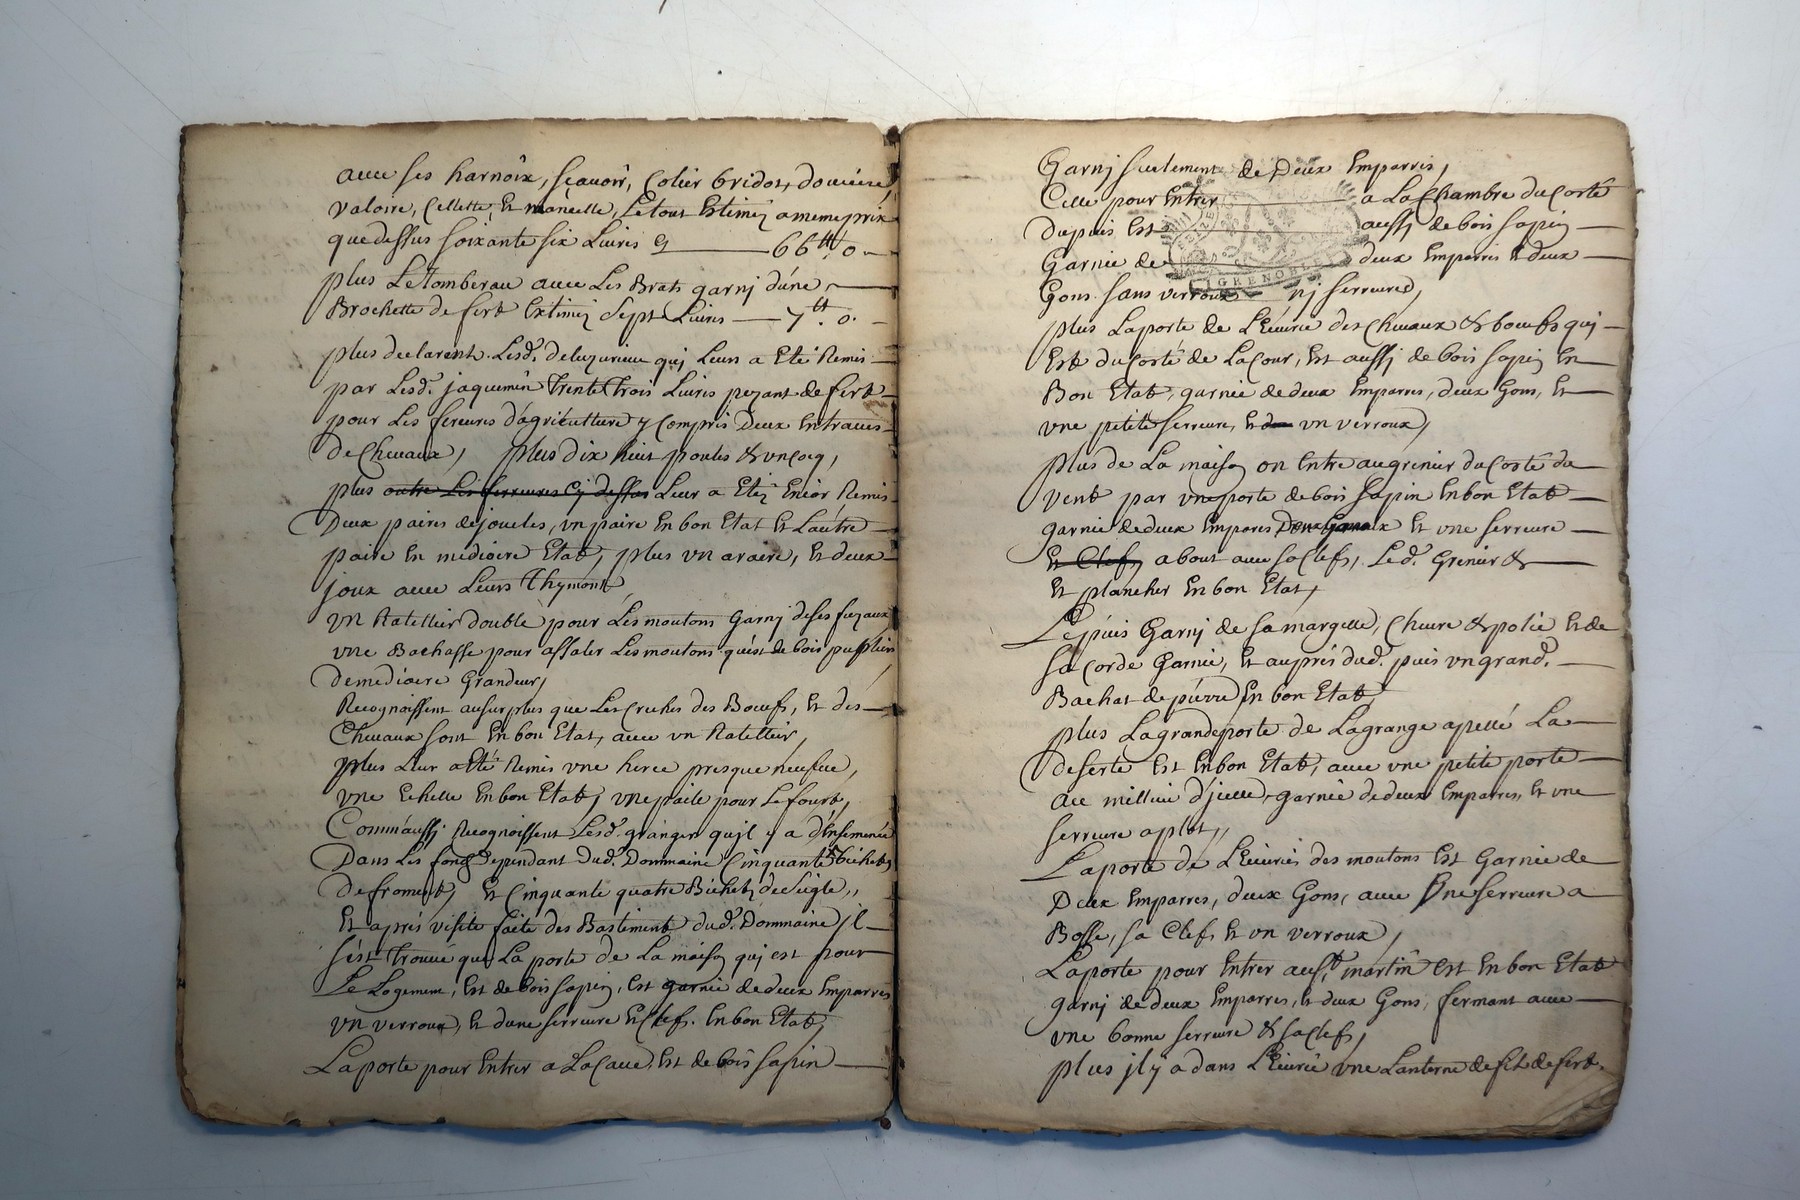 avec ses harnoix, sçavoir, Colier bridot, doussiere,
valoire, Cellette, et mancelle, Le tout Estimez a meme prix
que dessus soixante six Livres cy 66tt 0
plus Le tomberau avec Les Brats garnj d'une
Brochette de fert Estimez Sept Livres 7tt. 0.
plus declarent Lesd. qui Leur a Eté Remis
par Lesd. jaquemin trente trois Livres pezant de fert
pour Les fereures d'agriculture y Compris Deux Entraves
de Chevaux, plus dix huit poules & un Coq,
plus outre Les ferreures Cj dessus Leur a Etez Encor Remis
Deux paires de jouctes, un paire En bon Etat Et L'autre
paire En mediocre Etat, plus un araire, Et deux
joux avec Leurs thymont
un Ratellier double pour Les moutons Garnj de ses fuzaux
une Bachasse pour assaler Les moutons qu'est de bois
de mediocre Grandeur,
Recognoissent au surplus que Les Creches des Boeufs, Et des
Chevaux sont En bon Etat, avec un Ratellier,
plus Leur a Eté Remis une herce presque neufve,
une Echelle En bon Etat, une paile pour Le fourt,
Comm'aussj Recognoissent Lesd. granger qu'jl y a d'Ensemencé
Dans Les fonds dependant dud. Dommaine Cinquante bichets
de froment, Et Cinquante quatre Bichets de seigle,,
Et aprés visite faite des Bastiments dud. Dommaine jl
s'est trouvé que La porte de La maison quj est pour
Le Logement, Est de bois sapin, Est garnie de deux Emparres
un verroux, Et d'une serreure Et Clef. En bon Etat,
La porte pour Entrer a La Cave, Est de bois sapin
Garnj seulement de Deux Emparres,
Celle pour Entrer a La Chambre du Costé
Du puis Est aussj de bois sapin
Garnie de deux Emparres Et deux
Gons sans verroux nj serreures,
GRENOBLE
plus La porte de L'Ecurie des Chevaux & boeufs quj
Est du Costé de La Cour, Est aussj de bois sapin En
Bon Etat, garnie de deux Emparres, deux Gons, Et
une petite serreure, Et un verroux,
plus de La maison on Entre au grenier du Costé du
vent par une porte de bois sapin En bon Etat
garnie de deux Empares Et une serreure
Et Clef, a bout avec sa Clef, Led. Grenier &
Et plancher En bon Etat,
Le puis Garnj de sa margelle, Chevre & polie Et de
sa Corde Garnie, Et auprés dud. puis un grand.
Bachat de pierre En bon Etat,
plus La grande porte de La grange apellé La
deserte Est En bon Etat, avec une petite porte
au millieu d'jcelle, garnie de deux Emparres, Et une
serreure a plat,,
La porte de L'Ecurie des moutons Est Garnie de
Deux Emparres, deux Gons, avec Une serreure a
Bosse, sa Clef, Et un verroux,
La porte pour Entrer au St. martin Est En bon Etat
garnj de deux Emparres, Et deux Gons, fermant avec
une bonne serreure & sa Clef,
plus jl y a dans L'Ecurie une Lanterne de fil de fert.